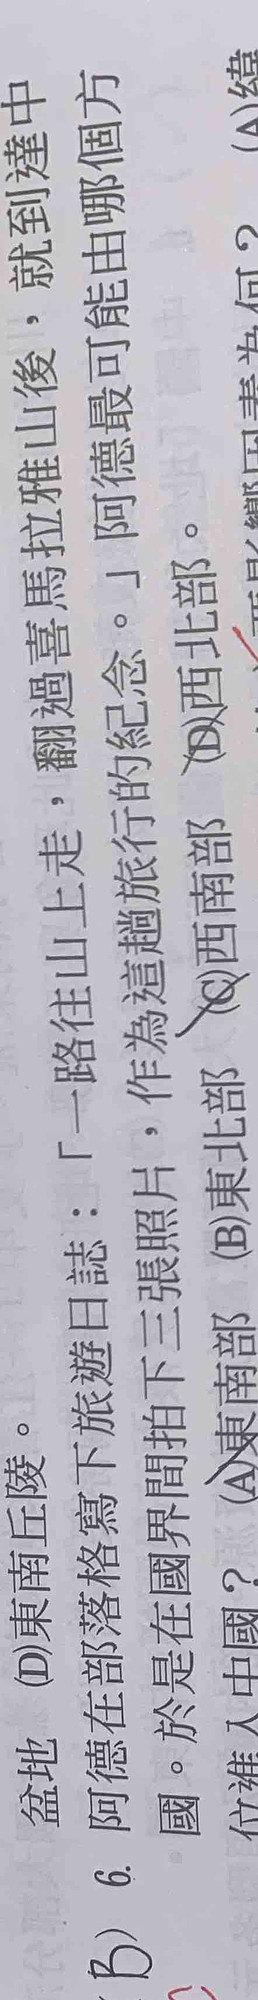 盆地 (D)東南丘陵。
(B) 6. 阿德在部落格寫下旅遊日誌：「一路往山上走，翻過喜馬拉雅山後，就到達中
國。於是在國界間拍下三張照片，作為這趟旅行的紀念。」阿德最可能由哪個方
位進入中國？ (A)東南部 (B)東北部 (C)西南部 (D)西北部。
(A)緯